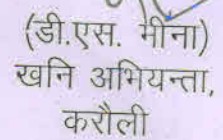 (डी.एस. मीना)
खनि अभियन्ता,
करौली